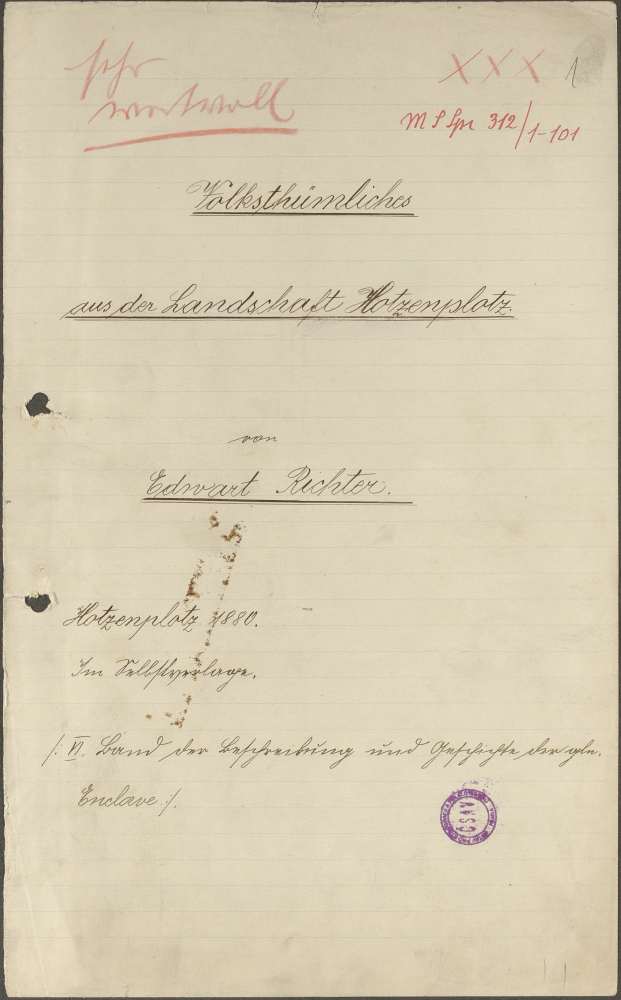 sehr
wertvoll
XXX 1
MS Spr 312/1-101
Volksthümliches
aus der Landschaft Hotzenplotz.
von
Edwart Richter.
Hotzenplotz 1880.
Im Selbstverlage.
/: VI. Band der Beschreibung und Geschichte der gln.
Enclave :/.
ČSAV